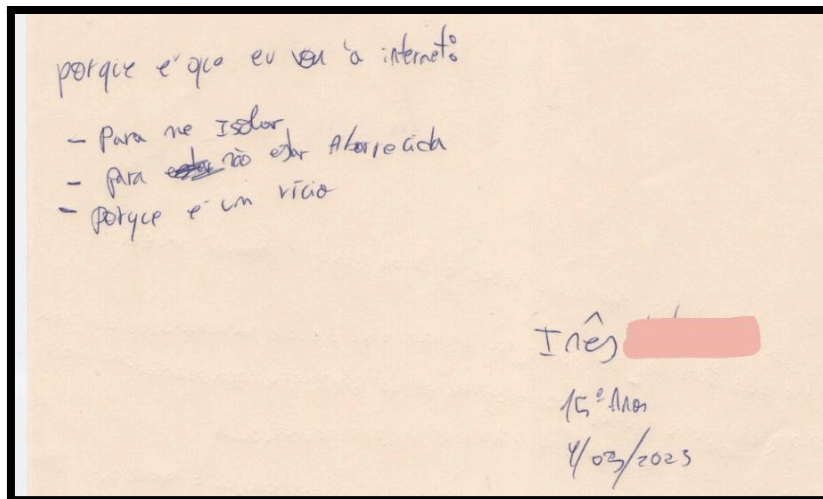 porque é que eu vou à internet:
- Para me Isolar
- para não estar Aborrecida
- porque é um vício
Inês
15º Anos
4/03/2023